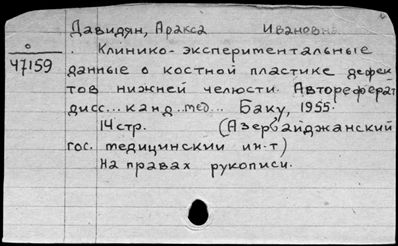 Давидян, Аракса Ивановна
о
47159
Клинико-экспериментальные
данные о костной пластике дефек
тов нижней челюсти. Автореферат
дисс... канд. мед... Баку, 1955.
14стр. (Азербайджанский
гос. медицинский ин-т)
На правах рукописи.